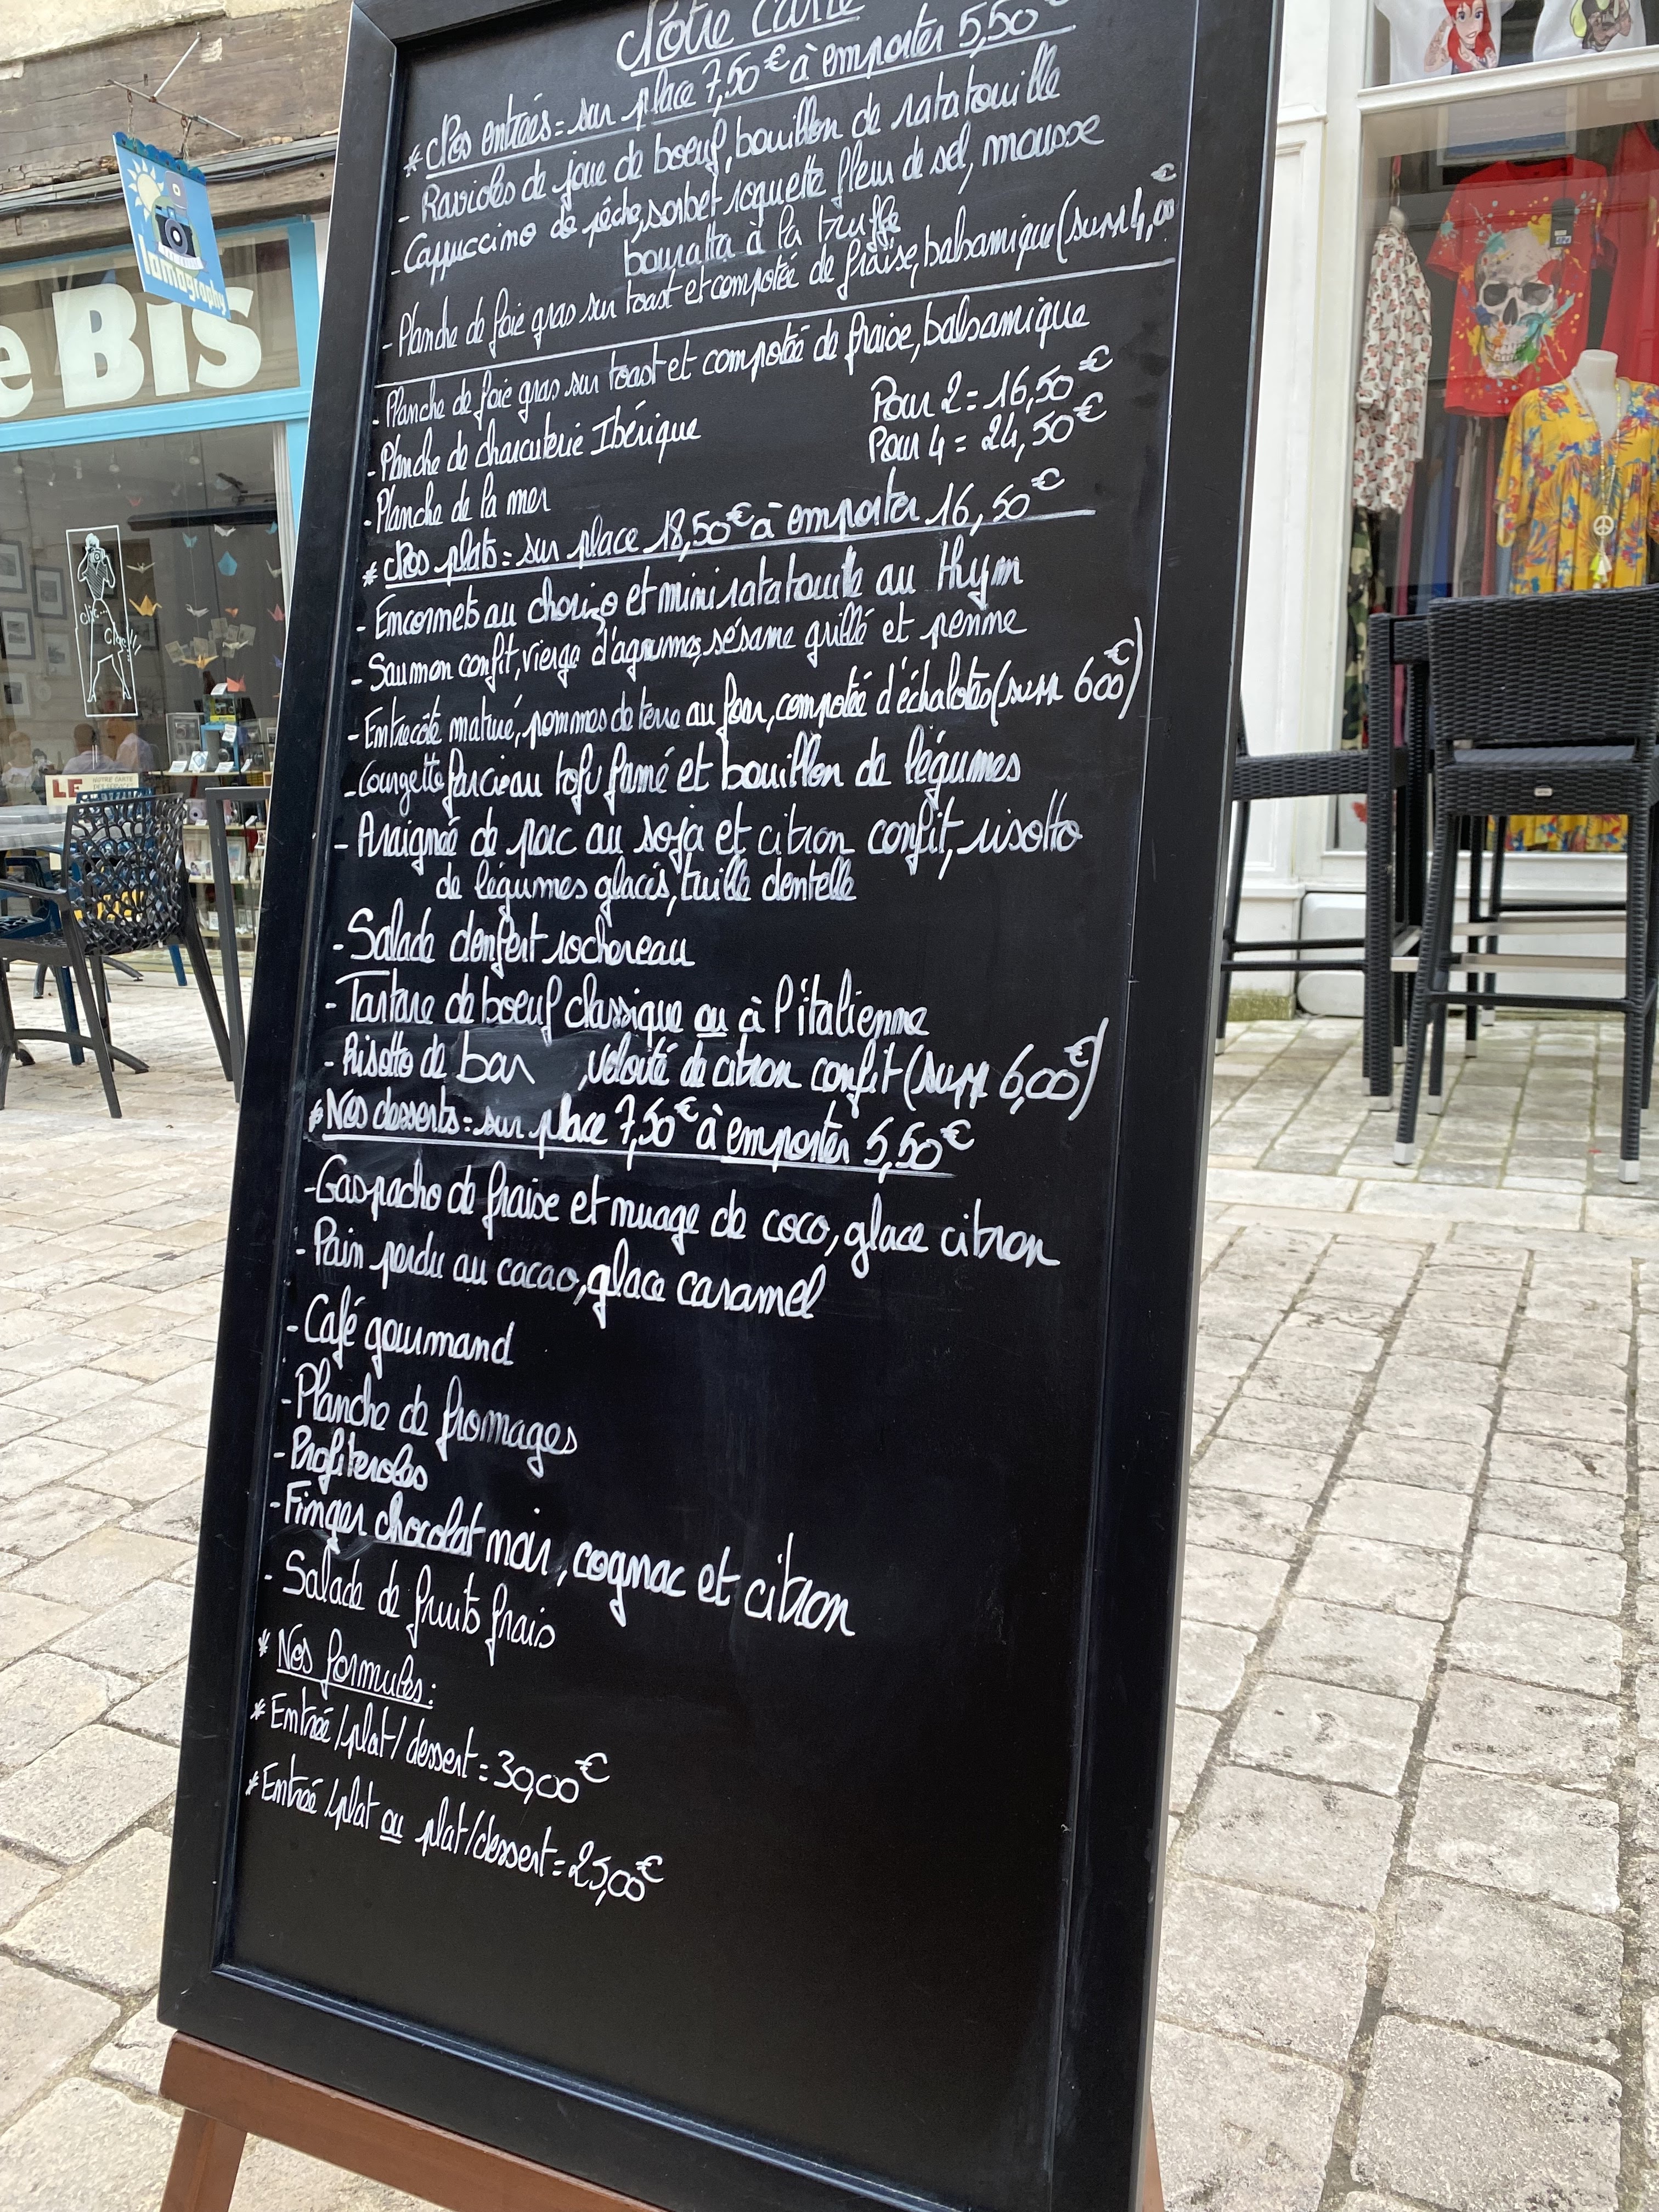 Notre carte
* Nos entrées = sur place 7,50€ à emporter 5,50€
- Ravioles de joue de boeuf, bouillon de ratatouille
- Cappuccino de pêche, sorbet roquette fleur de sel, mousse
bouratta à la truffe
- Planche de foie gras sur toast et compotée de fraise, balsamique (supp 4,00€
- Planche de foie gras sur toast et compotée de fraise, balsamique
- Planche de charcuterie Ibérique
Pour 2 = 16,50€
Pour 4 = 24,50€
- Planche de la mer
* Nos plats = sur place 18,50€ à emporter 16,50€
- Encornets au chorizo et mini ratatouille au thym
- Saumon confit, vierge d'agrumes, sésame grillé et penne
- Entrecôte maturé, pommes de terre au four, compotée d'échalotes (supp 6,00€)
- Courgette farcie au tofu fumé et bouillon de légumes
- Araignée de porc au soja et citron confit, risotto
de légumes glacés, tuille dentelle
- Salade denfert rochereau
- Tartare de boeuf classique ou à l'italienne
- Risotto de bar , velouté de citron confit (supp 6,00€)
* Nos desserts = sur place 7,50€ à emporter 5,50€
- Gaspacho de fraise et nuage de coco, glace citron
- Pain perdu au cacao, glace caramel
- Café gourmand
- Planche de fromages
- Profiteroles
- Finger chocolat noir, cognac et citron
- Salade de fruits frais
* Nos formules :
* Entrée / plat / dessert = 30,00€
* Entrée / plat ou plat / dessert = 25,00€
lomography
e BIS
clic
Clac!!
LE
NOTRE CARTE